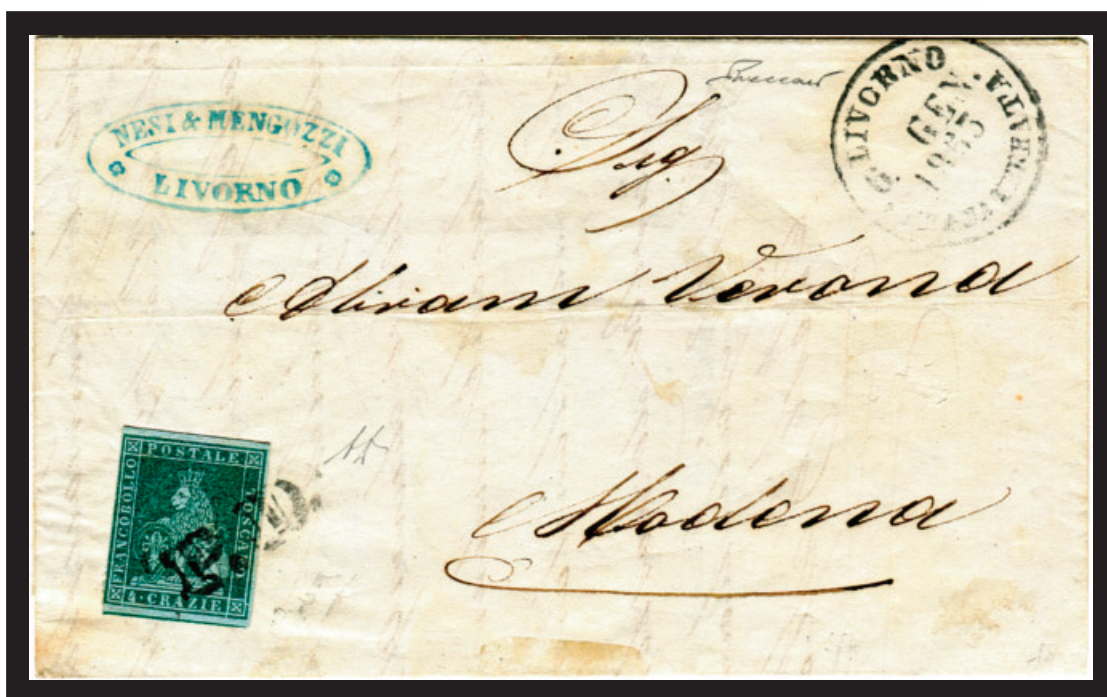 NESI & MENGOZZI
LIVORNO
LIVORNO
GEN
1855
Sig
Abram Verona
Modena
FRANCOBOLLO
POSTALE
TOSCANO
4·CRAZIE